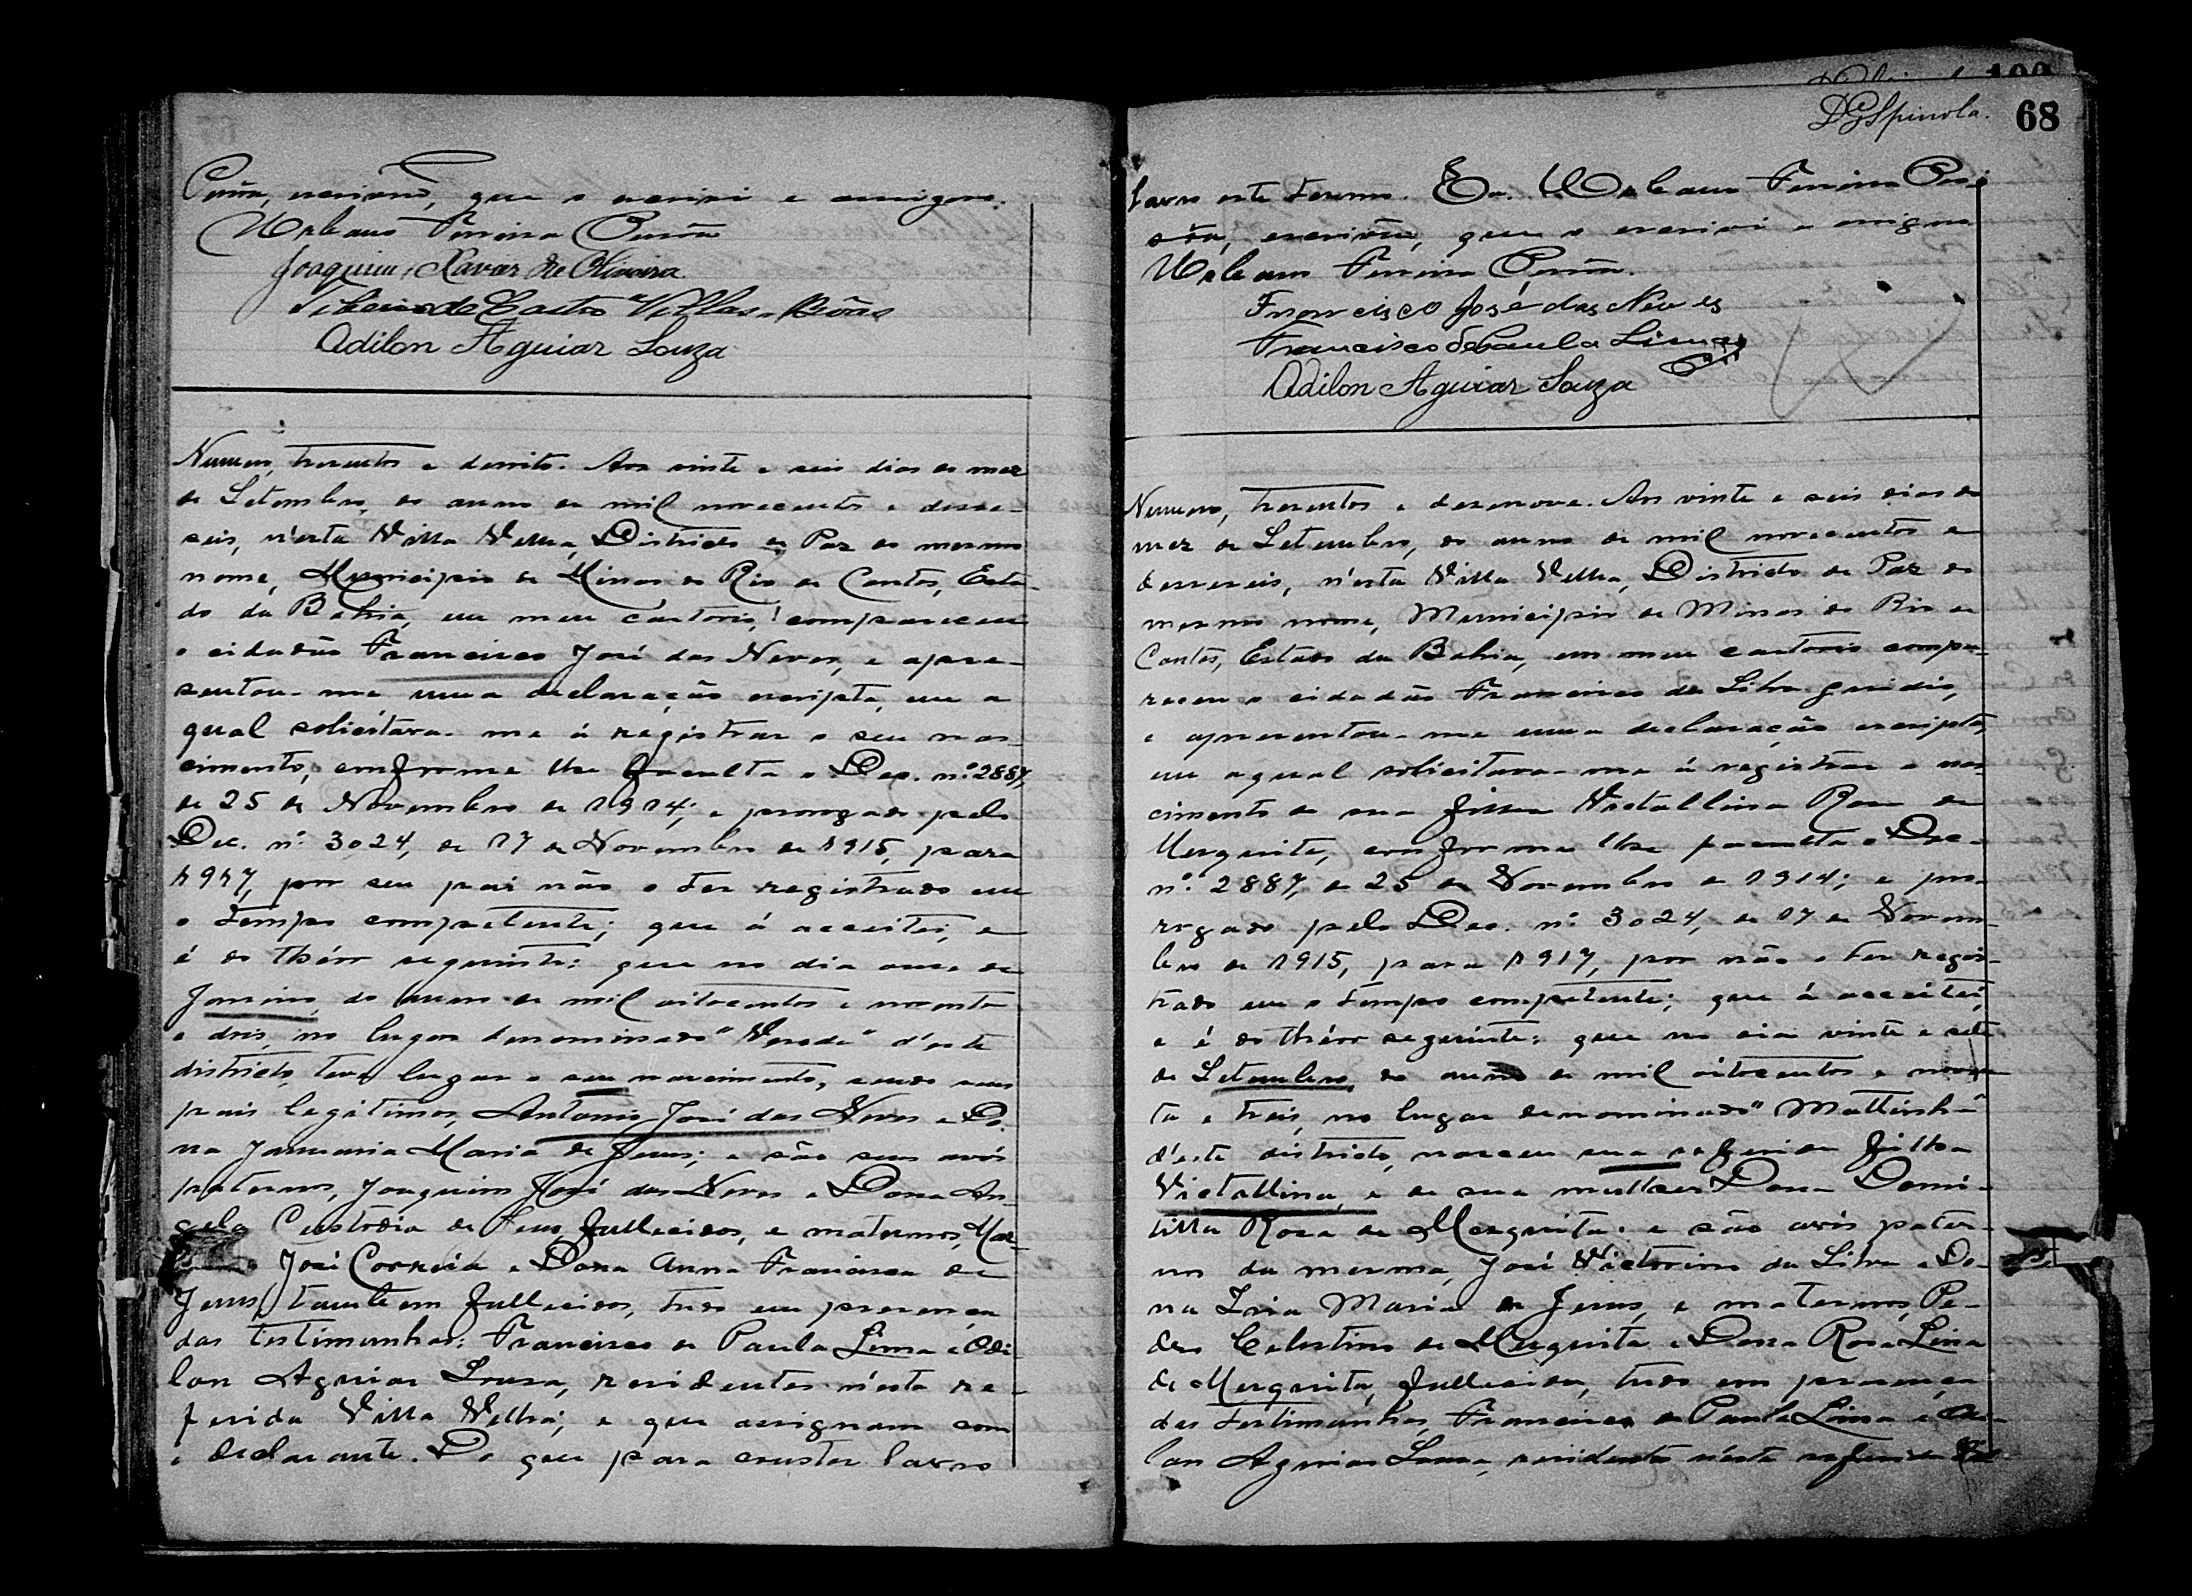 escrivão, que o escrevi e assigno.
Urbano Ferreira
Joaquim Xavier de Oliveira
Tiberio de Castro Villas-Bôas
Adilon Aguiar Souza
Numero, trezentos e dezoito. Aos vinte e seis dias do mez
de Setembro, do anno de mil novecentos e deze-
seis, n'esta Villa Velha, Districto de Paz do mesmo
nome, Municipio de Minas do Rio de Contas, Esta-
do da Bahia, em meu cartorio, compareceu
o cidadão Francisco José das Neves, e apre-
sentou-me uma declaração escripta, em a
qual solicitava-me á registrar o seu nas-
cimento, conforme lhe faculta o Dec. nº 2887,
de 25 de Novembro de 1914; e prorogado pelo
Dec. nº 3024, de 17 de Novembro de 1915, para
1917, por seu pai não o ter registrado em
o tempo competente; que á acceitei, e
é do theôr seguinte: que no dia onze de
Janeiro, do anno de mil oitocentos e noventa
e dois, no lugar denominado "Vereda" d'este
districto, teve lugar o seu nascimento, sendo seus
pais legitimos, Antonio José das Neves e Do-
na Januaria Maria de Jesus; e são seus avós
paternos, Joaquim José das Neves e Dona An-
gela Custodia de Jesus, fallecidos, e maternos,
José Correia e Dona Anna Francisca de
Jesus, tambem fallecidos, tudo em presença
das testimunhas: Francisco de Paula Lima e Adi-
lon Aguiar Souza, residentes n'esta re-
ferida Villa Velha; e que assignam com
o declarante. Do que para constar lavro
DGSpinola. 68
lavro este termo. Eu, Urbano Ferreira
escrivão, que o escrevi e assigno
Urbano Ferreira
Francisco José das Neves
Francisco de Paula Lima
Adilon Aguiar Souza
Numero, trezentos e dezenove. Aos vinte e seis dias do
mez de Setembro, do anno de mil novecentos e
dezeseis, n'esta Villa Velha, Districto de Paz do
mesmo nome, Municipio de Minas do Rio de
Contas, Estado da Bahia, em meu cartorio compa-
receu o cidadão Francisco da Silva
e apresentou-me uma declaração escripta,
em a qual solicitava-me á registrar o nas-
cimento de sua filha Victallina Rosa de
Mesquita, conforme lhe faculta o Dec.
nº 2887, de 25 de Novembro de 1914; e pro-
rogado pelo Dec. nº 3024, de 17 de Novem-
bro de 1915, para 1917, por não o ter regis-
trado em o tempo competente; que á acceitei,
e é do theôr seguinte: que no dia vinte e sete
de Setembro, do anno de mil oitocentos e noven-
ta e treis, no lugar denominado "Mattinha"
d'este districto, nasceu sua referida filha
Victallina, e de sua mulher Dona Domi-
tilla Rosa de Mesquita: e são avós pater-
nos da mesma, José Victorino da Silva e Do-
na Iria Maria de Jesus, e maternos, Pe-
dro Celestino de Mesquita e Dona Rosa Lina
de Mesquita, fallecida, tudo em presença
das testimunhas, Francisco de Paula Lima e Adi-
lon Aguiar Souza, residentes n'esta referida